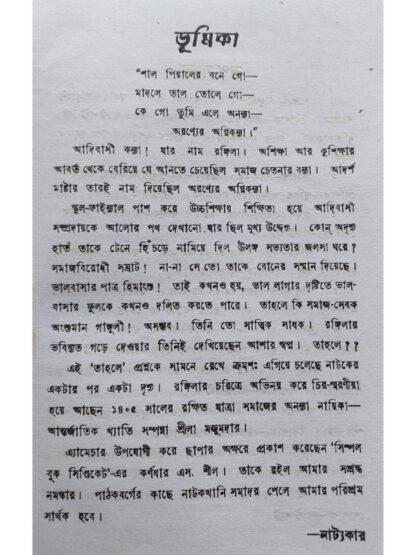 ভূমিকা
"শাল পিয়ালের বনে গো—
মাদলে তাল তোলে গো—
কে গো তুমি এলে অনন্যা—
অরণ্যের অগ্নিকন্যা।"
আদিবাসী কন্যা! যার নাম রঙ্গিলা। অশিক্ষা আর কুশিক্ষার
আবর্ত থেকে বেরিয়ে যে আনতে চেয়েছিল সমাজ চেতনার বন্যা। আদর্শ
মাষ্টার তারই নাম দিয়েছিল অরণ্যের অগ্নিকন্যা।
স্কুল-ফাইন্যাল পাশ করে উচ্চশিক্ষায় শিক্ষিতা হয়ে আদিবাসী
সম্প্রদায়কে আলোর পথ দেখানো যার ছিল মুখ্য উদ্দেশ্য। কোন্ অদৃশ্য
হাত তাকে টেনে হিঁচড়ে নামিয়ে দিল উলঙ্গ সভ্যতার জলসা ঘরে?
সমাজবিরোধী সম্রাট! না-না সে তো তাকে বোনের সম্মান দিয়েছে।
ভালবাসার পাত্র হিমাংশু! তাই কখনও হয়, ভাল লাগার দৃষ্টিতে ভাল-
বাসার ফুলকে কখনও দলিত করতে পারে। তাহলে কি সমাজ-সেবক
অংশুমান গাঙ্গুলী! অসম্ভব। তিনি তো সাত্ত্বিক সাধক। রঙ্গিলার
ভবিষ্যত গড়ে দেওয়ার তিনিই দেখিয়েছেন আশার স্বপ্ন। তাহলে??
এই 'তাহলে' প্রশ্নকে সামনে রেখে ক্রমশঃ এগিয়ে চলেছে নাটকের
একটার পর একটা দৃশ্য। রঙ্গিলার চরিত্রে অভিনয় করে চির-স্মরণীয়া
হয়ে আছেন ১৪০৫ সালের রক্ষিত যাত্রা সমাজের অনন্যা নায়িকা—
আন্তর্জাতিক খ্যাতি সম্পন্না শ্রীলা মজুমদার।
এ্যামেচার উপযোগী করে ছাপার অক্ষরে প্রকাশ করেছেন 'সিম্পল
বুক সিণ্ডিকেট'-এর কর্ণধার এস. শীল। তাকে রইল আমার সশ্রদ্ধ
নমস্কার। পাঠকবর্গের কাছে নাটকখানি সমাদর পেলে আমার পরিশ্রম
সার্থক হবে।
—নাট্যকার